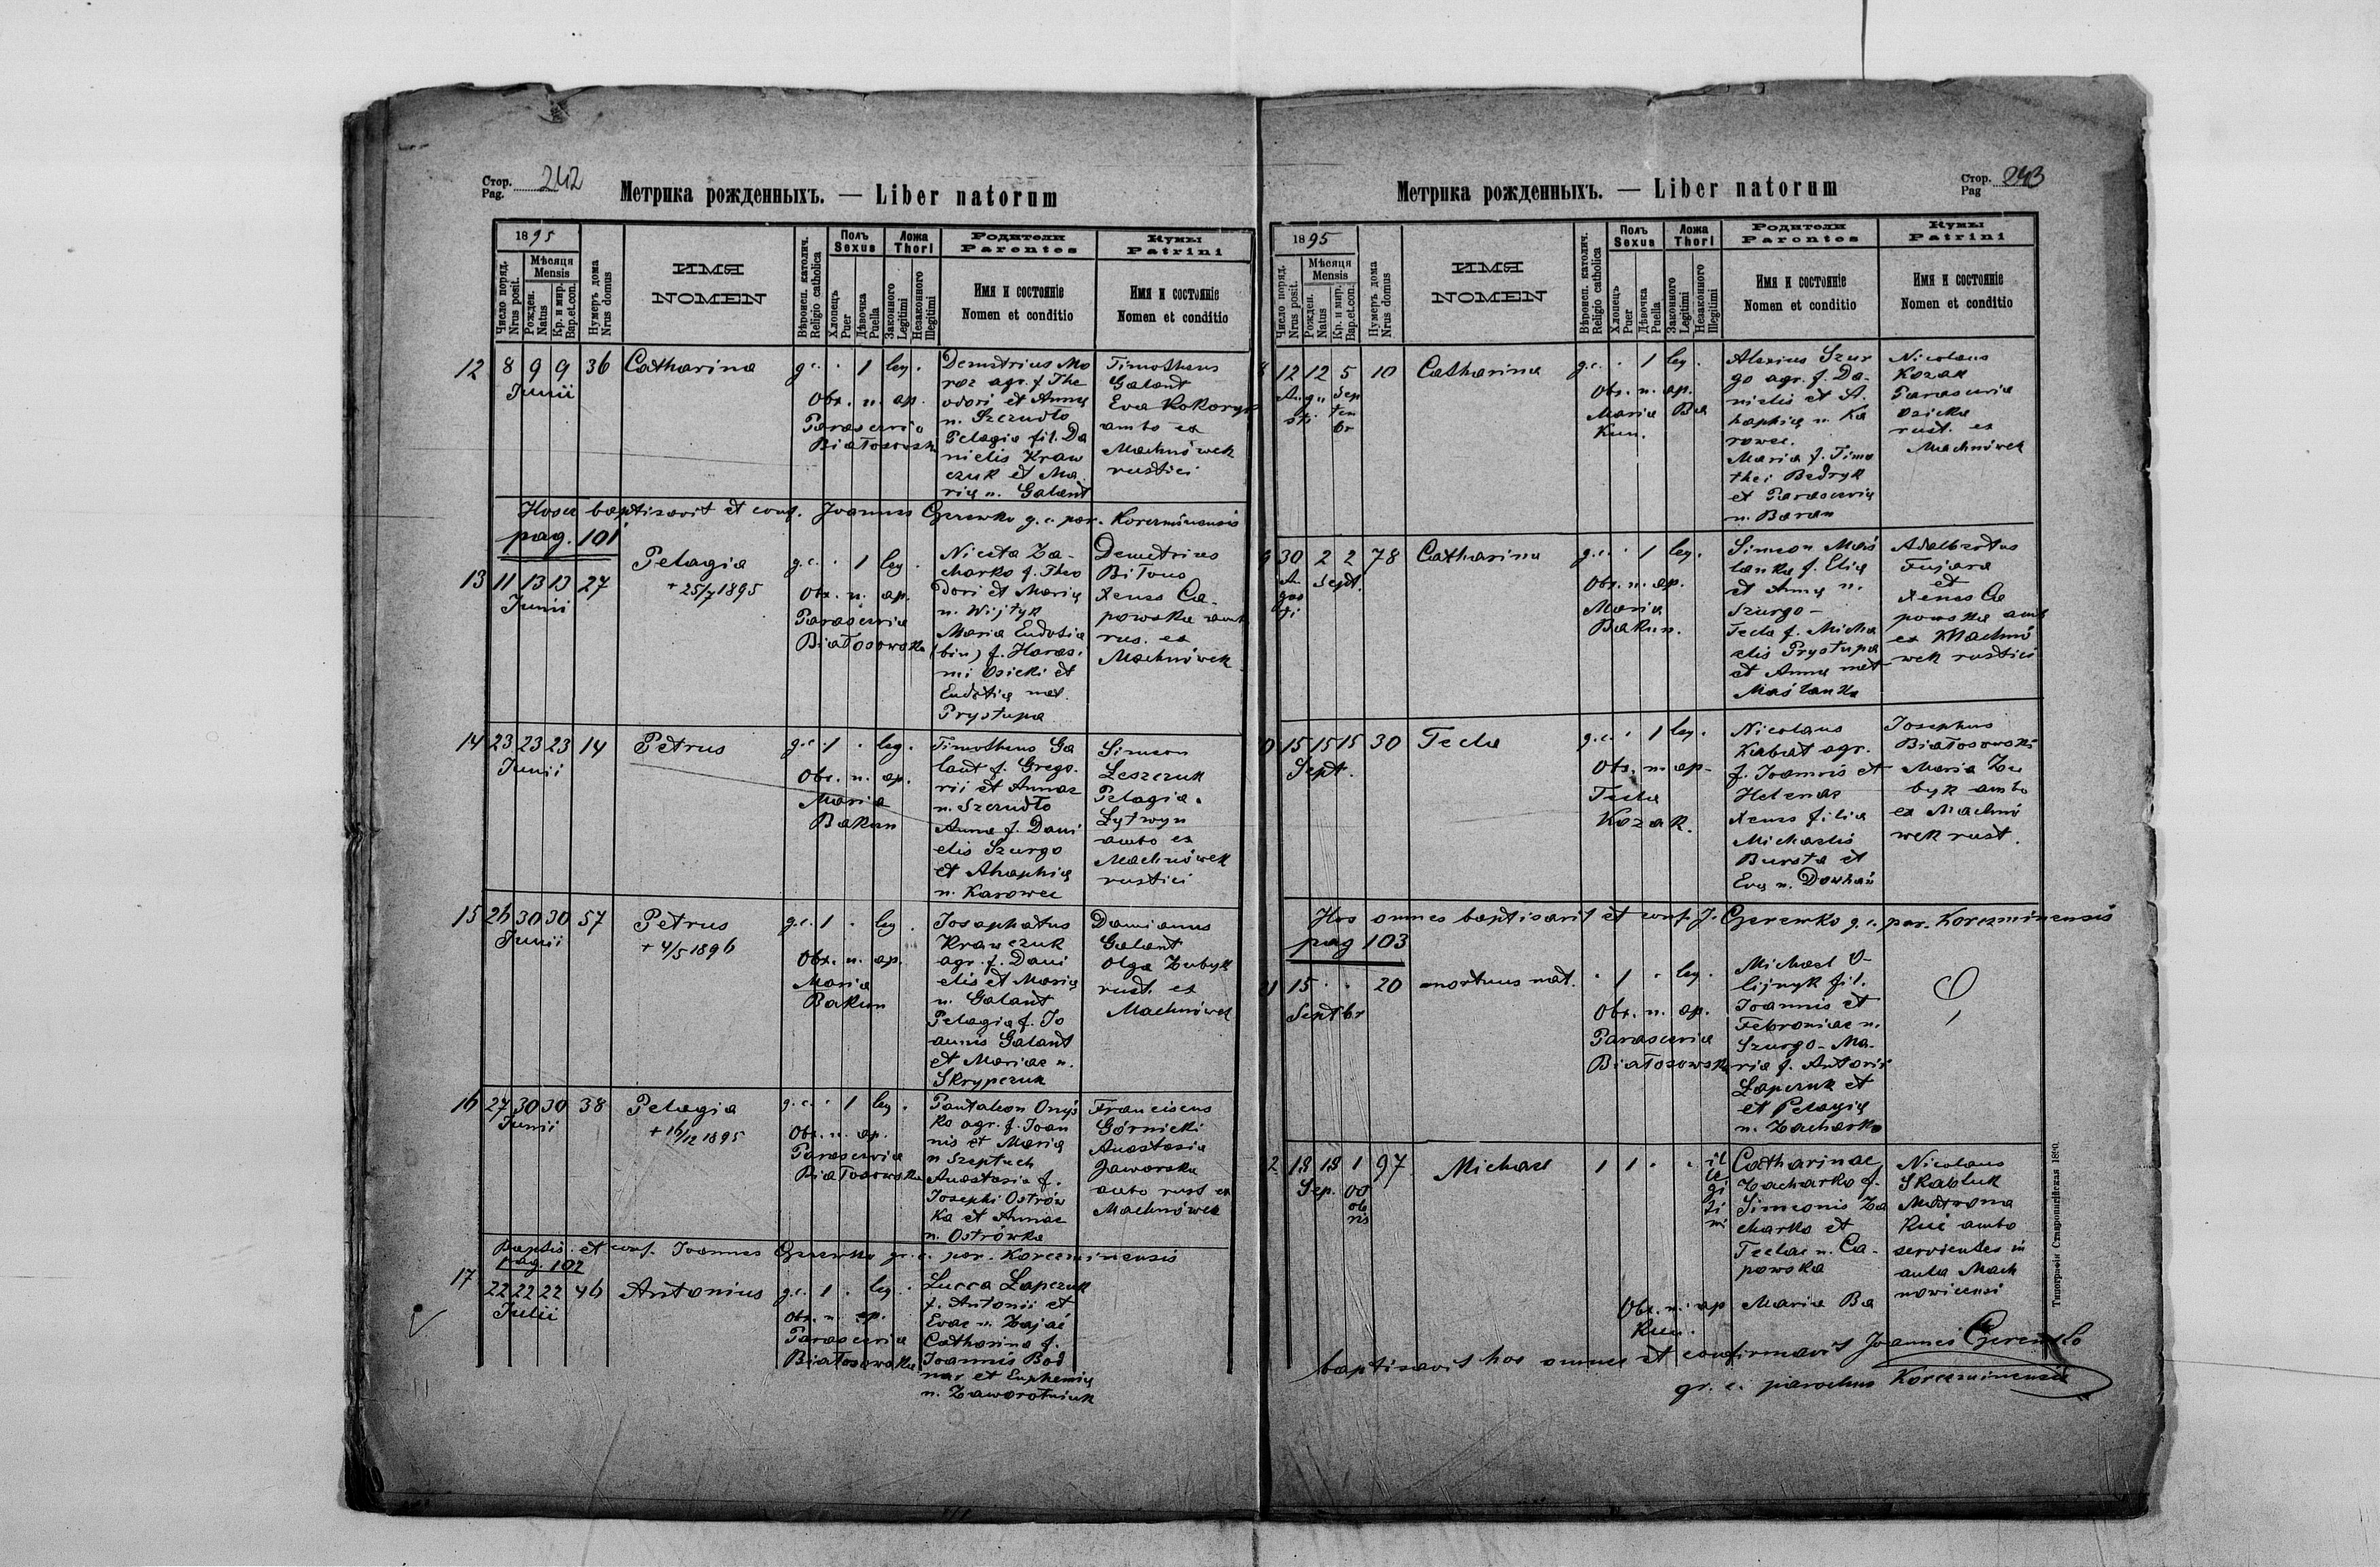 Стор. 242
Pag.
Метрика рожденныхъ. — Liber natorum
1895
Число поряд.
Nrus posit.
Мѣсяця
Mensis
Рожден.
Natus
Кр. и мир.
Bap.et.con.
Нумеръ дома
Nrus domus
ИМЯ
NOMEN
Вѣроисп. католич.
Religio catholica
Полъ
Sexus
Хлопецъ
Puer
Дѣвочка
Puella
Ложа
Thori
Законного
Legitimi
Незаконного
Illegitimi
Родители
Parentes
Имя и состоянiе
Nomen et conditio
Кумы
Patrini
Имя и состоянiе
Nomen et conditio
12 8 9 9 36 Catharina g.c. . 1 leg.
Junii
Obs. n. ap.
Parascevia
Białosowska
Demetrius Mo
roz agr. f. The
odori et Anna
n. Szczudło
Pelagia fil. Da
nielis Kraw
czuk et Ma
ria n. Galant
Timotheus
Galant
Eva Kokoryk
ambo ex
Machnówek
rustici
Hosce baptisavit et conf. Joannes Gerewko g.c. par. Korczminensis
pag. 101
13 11 13 13 27 Pelagia g.c. . 1 leg.
Junii
+ 25/7 1895
Obs. n. ap.
Parascevia
Białosowska
Niceta Za-
charko f. Theo
dori et Maria
n. Wijtyk
Maria Eudosia
(bin) f. Haras.
mi Osicki et
Eudotia nat.
Prystupa
Demetrius
Bilous
Xenia Ca-
powska amb
rus. ex
Machnówek
14 23 23 23 14 Petrus g.c. 1 . leg.
Junii
Obs. n. ap.
Maria
Bakun
Timotheus Ga
lant f. Grego.
rii et Annae
n. Szczudło
Anna f. Dani
elis Szurgo
et Ahaphia
n. Karowec
Simeon
Leszczuk
Pelagia
Lytwyn
ambo ex
Machnówek
rustici
15 26 30 30 57 Petrus g.c. 1 . leg.
Junii
+ 4/5 1896
Obs. n. ap.
Maria
Bakun
Josaphatus
Krawczuk
agr. f. Dani
elis et Maria
n. Galant
Pelagia f. Jo
annis Galant
et Mariae n.
Skrypczuk
Damianus
Galant
Olga Zubyk
rust. ex
Machnówek
16 27 30 30 38 Pelagia g.c. . 1 leg.
Junii
+ 16/12 1895
Obs. n. ap.
Parascevia
Białosowska
Pantaleon Onyś
ko agr. f. Joan
nis et Maria
n Szeptuch
Anastasia f.
Josephi Ostrów
ka et Annae
n. Ostrówka
Franciscus
Górnicki
Anastasia
Jaworska
ambo rust ex
Machnówek
Baptis. et conf. Joannes Gerewko gr. c. par. Korczminensis
pag. 102
17 22 22 22 46 Antonius g.c. 1 . leg.
Julii
Obs. n. ap.
Parascevia
Białosowska
Lucca Łapczuk
f. Antonii et
Evae n. Zajać
Catharina f.
Joannis Bod
nar et Euphemia
n. Zaworotniuk
Метрика рожденныхъ. — Liber natorum
Стор. 243
Pag
1895
Число поряд.
Nrus posit.
Мѣсяця
Mensis
Рожден.
Natus
Кр. и мир.
Bap.et.con.
Нумеръ дома
Nrus domus
ИМЯ
NOMEN
Вѣроисп. католич.
Religio catholica
Полъ
Sexus
Хлопецъ
Puer
Дѣвочка
Puella
Ложа
Thori
Законного
Legitimi
Незаконного
Illegitimi
Родители
Parentes
Имя и состоянiе
Nomen et conditio
Кумы
Patrini
Имя и состоянiе
Nomen et conditio
12 12 5 10 Catharina g.c. . 1 leg.
Augu Sep
sti tem
br
Obs. n. ap.
Maria Ba
kun.
Alexius Szur
go agr. f. Da-
nielis et A.
haphia n. Ka
rowec.
Maria f. Timo
thei Bedryk
et Parascevia
n. Baran
Nicolaus
Kozak
Parascevia
Osicka
rust. ex
Machnówek
30 2 2 78 Catharina g.c. . 1 leg.
Au
gus
ti
Sept.
Obs. n. ap.
Maria
Bakun.
Simeon Maś
lanka f. Elia
et Anna n.
Szurgo-
Tecla f. Micha
elis Prystupa
et Anna nat
Maślanka
Adalbertus
Fujara
et
Xenia Ca
powska amb
ex Machnó
wek rustici
15 15 15 30 Tecla g.c. . 1 leg.
Sept.
Obs. n. ap.
Tecla
Kozak.
Nicolaus
Kabat agr.
f. Joannis et
Helenae
Xenia filia
Michaelis
Bursta et
Eva n. Dowhań
Josephus
Białosowski
Maria Zu
byk ambo
ex Machnó
wek rust.
Hos omnes baptisavit et conf. J. Gerewko g.c. par. Korczminensis
pag 103
15 . . 20 mortuus nat. . 1 . leg.
Septbr
Obs. n. ap.
Parascevia
Białosowska
Michael O-
lijnyk fil.
Joannis et
Febroniae n.
Szurgo - Ma-
ria f. Antonii
Łapczuk et
et Pelagia
n. Zacharko
2 18 18 1 97 Michael 1 1 . .
il
le
gi
ti
mi
Sep. Oct
ob
ris
Catharinae
Zacharko f.
Simeonis Za
charko et
Teclae n. Ca-
powska
Nicolaus
Skabluk
Matrona
Kuć ambo
servientes in
aula Mach
nowicensi
Obs. n. ap Maria Ba
kun.
baptisavit hos omnes et confirmavit Joannes Gerewko
gr. c. parochus Korczminensis
Типографія Ставропигійская 1890.